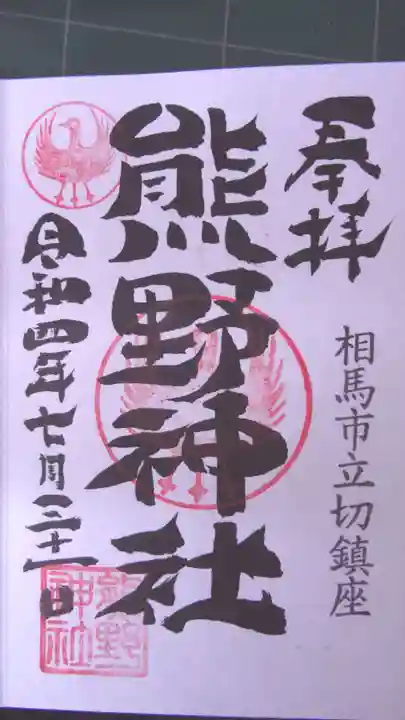 奉拝
相馬市立切鎮座
熊野神社
令和四年七月三十一日
熊野神社